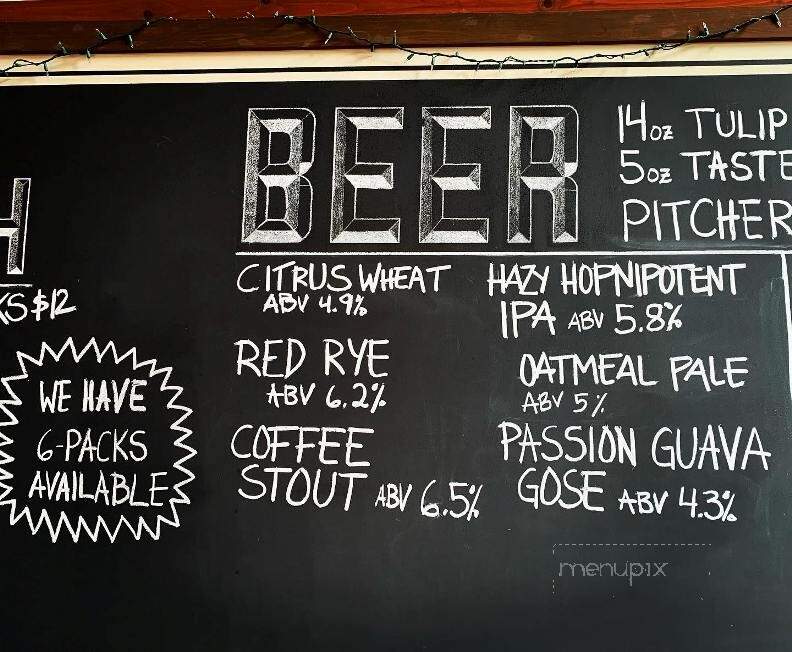 BEER
14oz TULIP
5oz
PITCHER
$12
WE HAVE
6-PACKS
AVAILABLE
CITRUS WHEAT
ABV 4.9%
RED RYE
ABV 6.2%
COFFEE
STOUT ABV 6.5%
HAZY HOPNIPOTENT
IPA ABV 5.8%
OATMEAL PALE
ABV 5%
PASSION GUAVA
GOSE ABV 4.3%
menupix